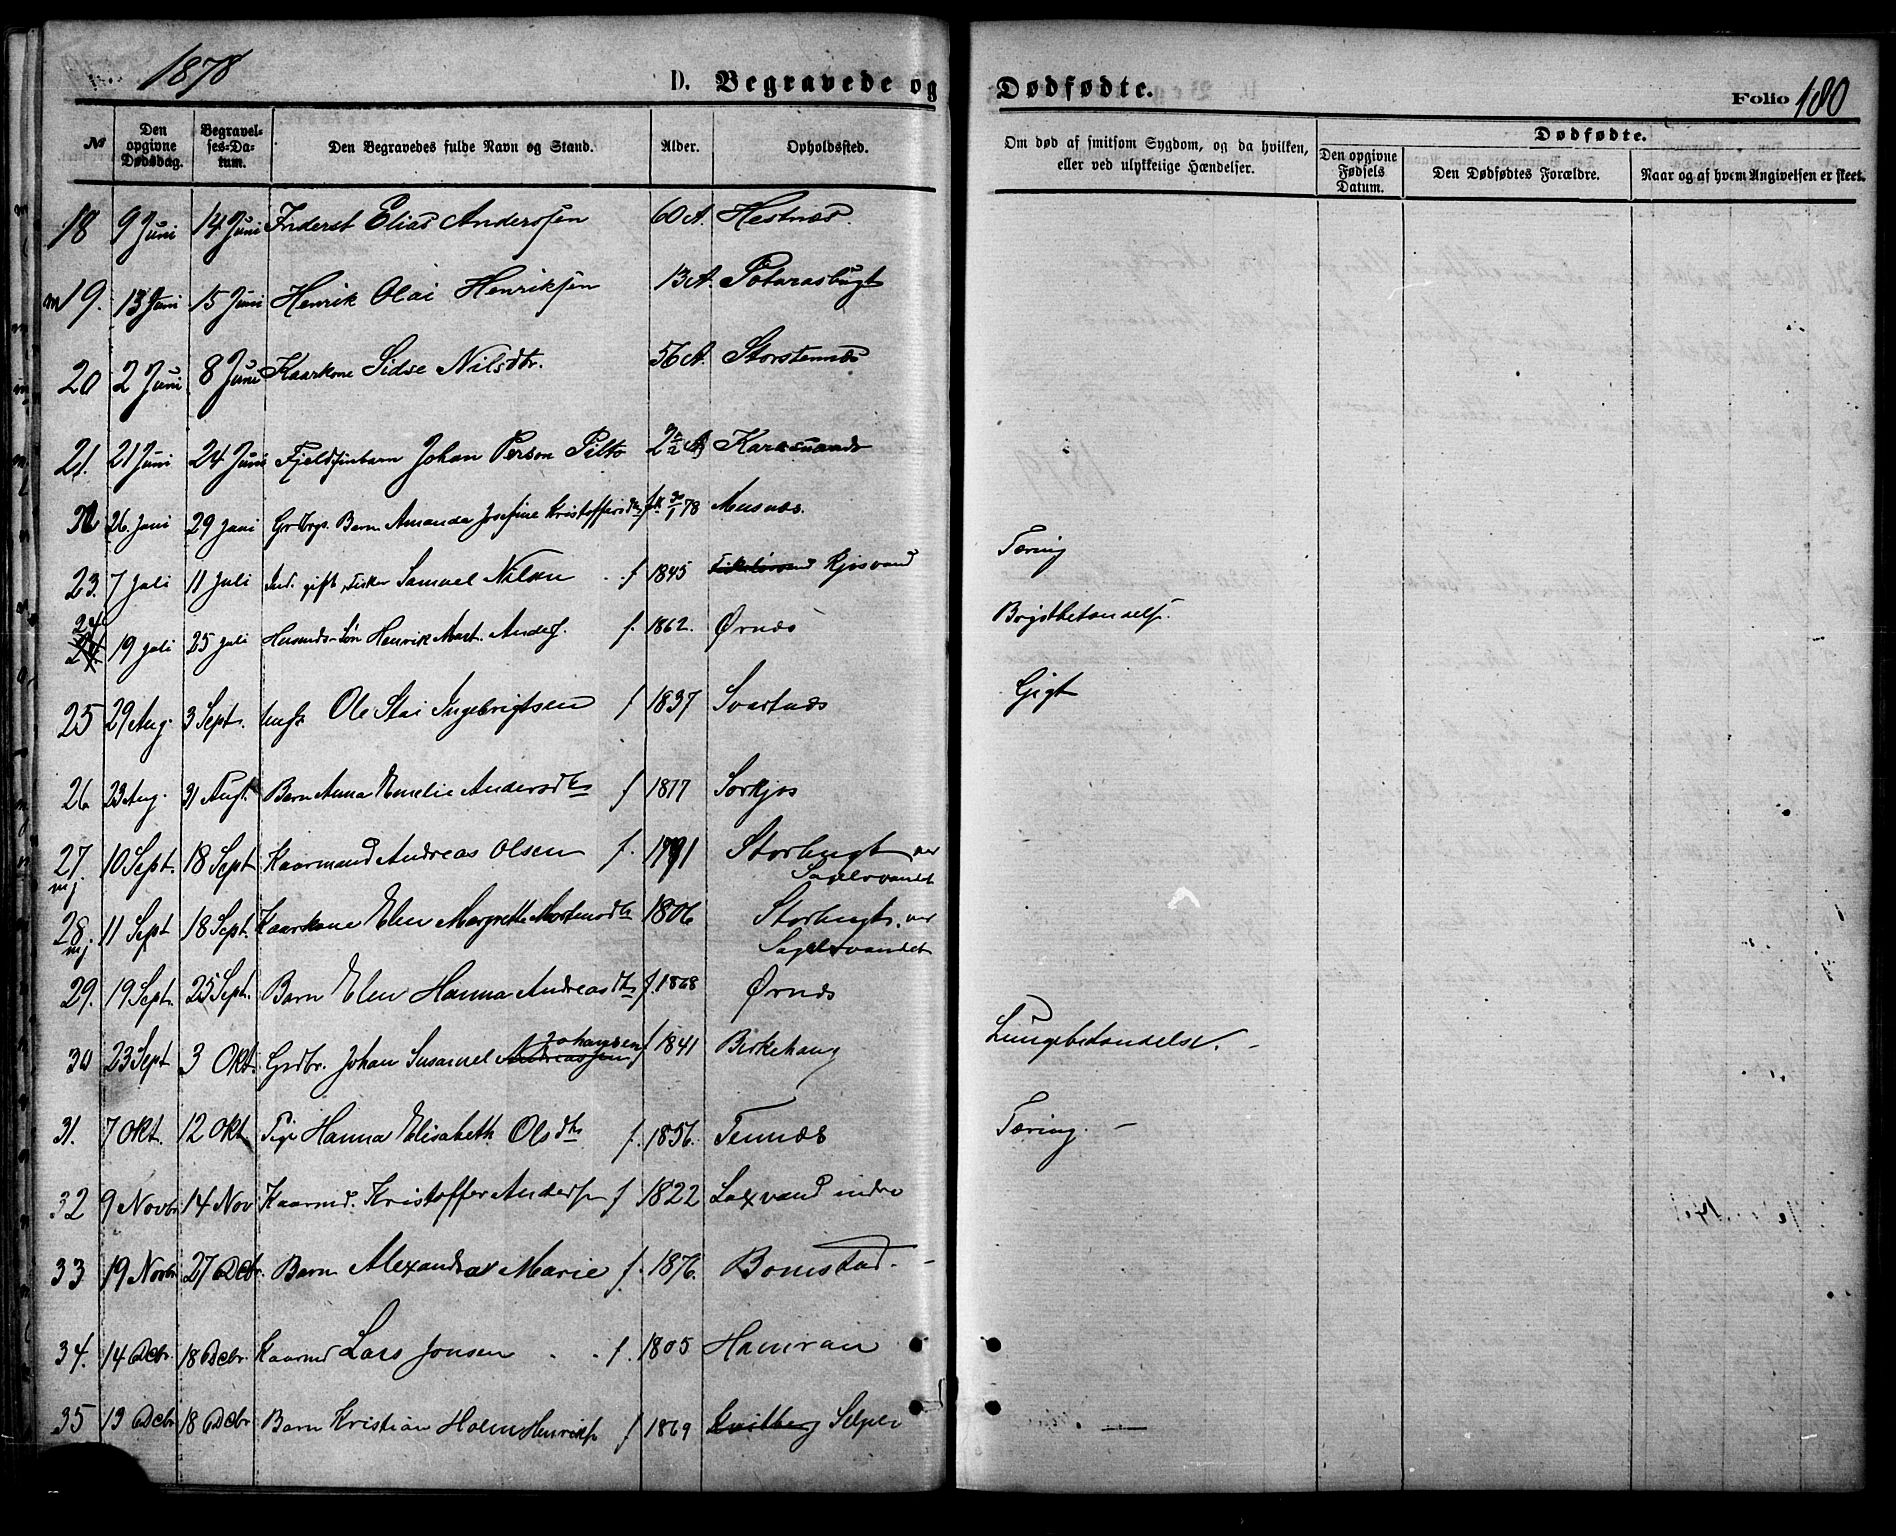 1878
D. Begravede og Dødfødte.
Folio 180
№
Den opgivne Dødsdag.
Begravelses-Datum.
Den Begravedes fulde Navn og Stand.
Alder.
Opholdssted.
Om død af smitsom Sygdom, og da hvilken, eller ved ulykkelige Hændelser.
Dødfødte.
Den opgivne Fødsels Datum.
Den Dødfødtes Forældre.
Naar og af hvem Angivelsen er skeet.
18 9 Juni 14 Juni Inderst Elias Anderssen 60 A. Hestnæs.
19. 13 Juni 15 Juni Henrik Olai Henriksen 13 A.
20 2 Juni 8 Juni Kaarkone Sidse Nilsdtr. 56 A. Storstennæs
21. 21 Juni 24 Juni Fjeldfinbarn Johan Person Pilto
22 26. Juni 29 Juni Grdbrgs. Barn Amanda Josefine Kristoffersdtr f. 30/1 78 Tæring
23. 7 Juli 11 Juli Ind. gift, Fisker Samuel Nilsen f 1845 Kjosvand
24 19 Juli 25 Juli Husmds-Søn Henrik Mart. Anders. f. 1862. Ørnæs Brystbetændelse
25 29 Aug. 3 Sept. Ole Ingebrigtsen f 1837 Svartnæs Gigt
26 23 Aug. 31 Aug. Barn Anna Emelie Andersdtr f 1877 Sørkjos
27. 10 Sept. 18 Sept Kaarmand Andreas Olsen f. 1791 Storbugt ver Sagelvvandet
28. 11 Sept 18 Sept. Kaarkone Elen Margrethe Mortensdtr 1806 Storbugt. ver Sagelvvandet
29. 19 Sept. 25 Sept. Barn Elen Hanna Andreasdtr f. 1868 Ørnæs
30 23 Sept 3 Okt. Grdbr. Johan Susamel Andreassen Johansen f 1841 Birkehaug Lungebetændelse. -
31. 7 Okt. 12 Okt Pige Hanna Elisabeth Olsdtr f. 1856. Tennæs Tæring. -
32 9 Novbr 14 Nov Kaarmd. Kristoffer Anders. f 1822 Laxvand indre
33 19 Novbr 27 Decbr. Barn Alexandra Marie f. 1876. Bomstad. -
34. 14 Decbr. 18 Decbr. Kaarmd Lars Jonsen f. 1805 Hamran
35 13 Decbr 18 Decbr Barn Kristian Holm Henriks. f 1869 Kvitberg